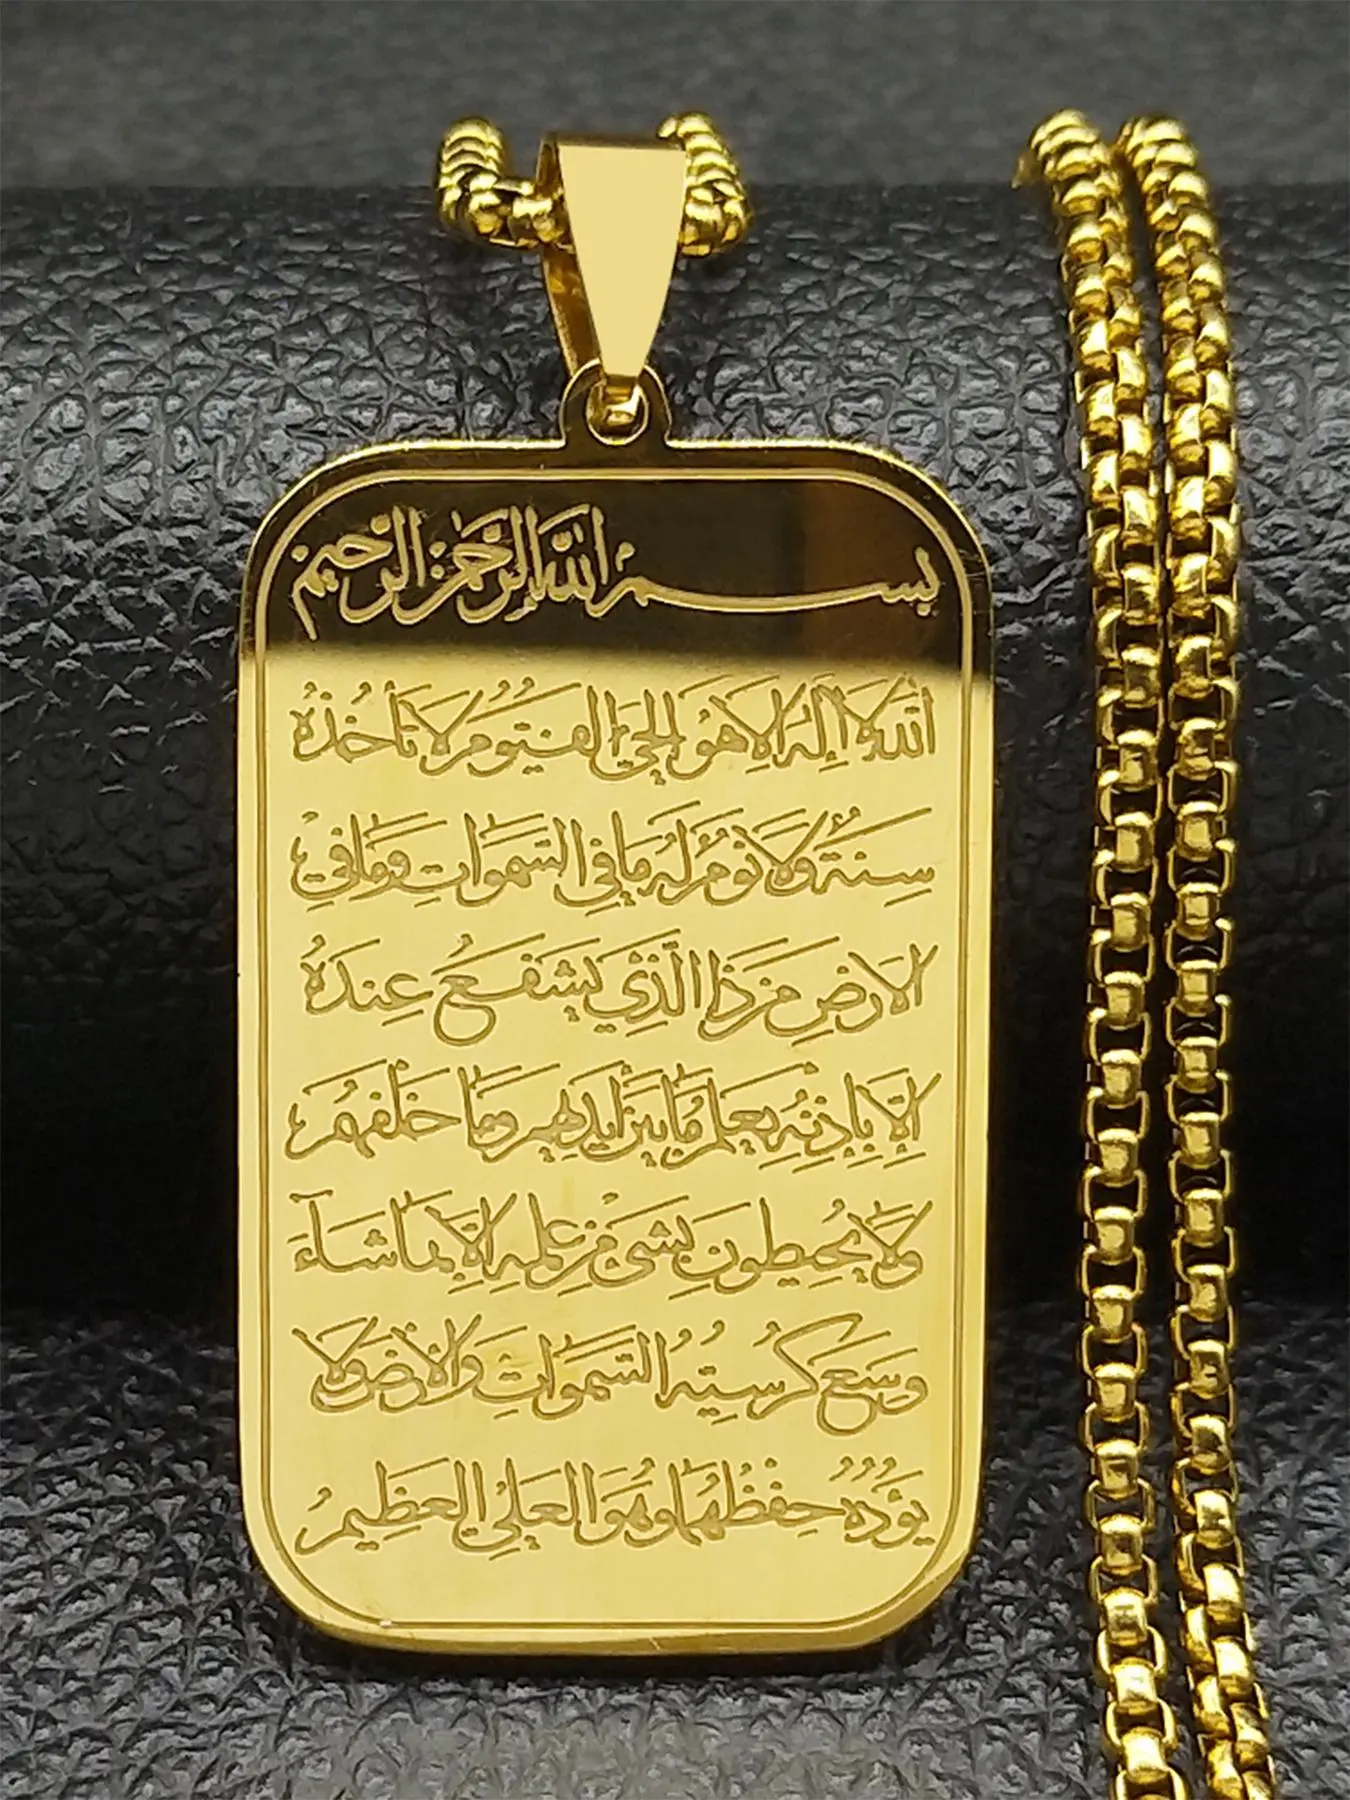 بسم الله الرحمن الرحيم
الله لا إله إلا هو الحي القيوم لا تأخذه
سنة ولا نوم له ما في السموات وما في
الارض من ذا الذي يشفع عنده
إلا بإذنه يعلم ما بين أيديهم وما خلفهم
ولا يحيطون بشئ من علمه إلا بما شاء
وسع كرسيه السموات والأرض ولا
يؤده حفظهما وهو العلي العظيم